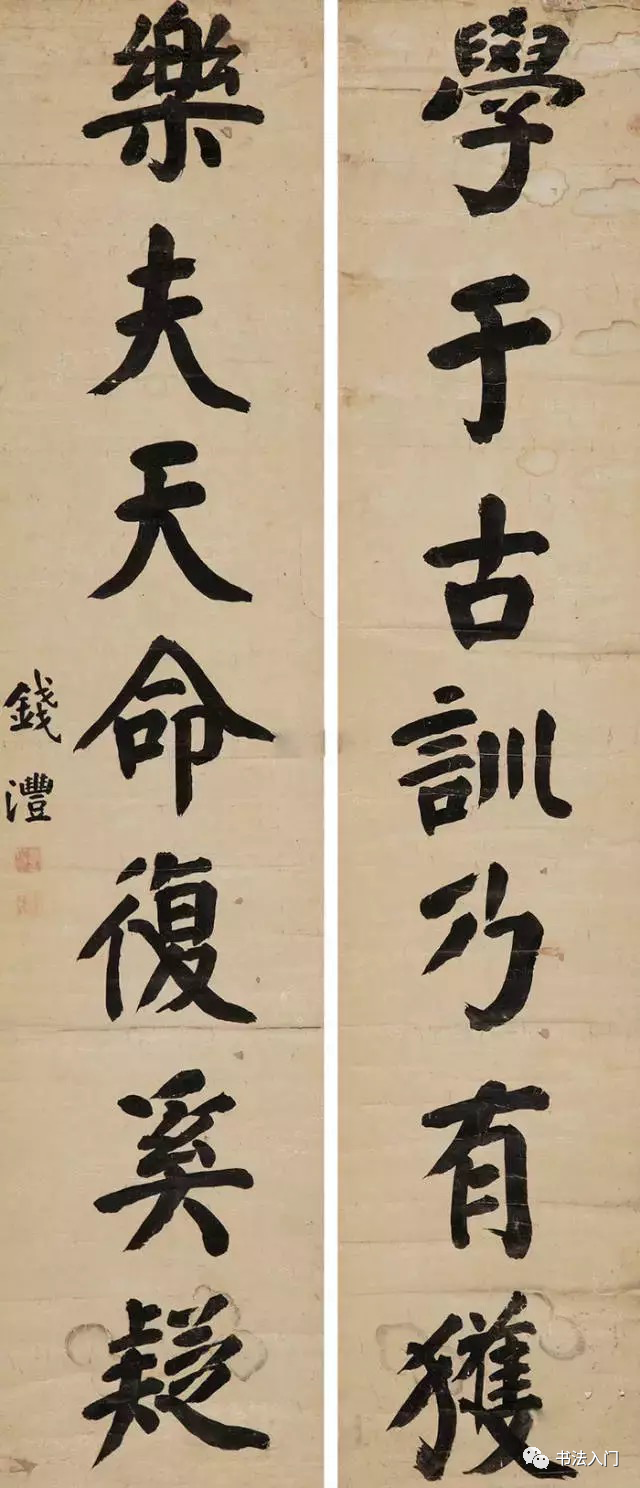 學于古訓乃有獲
樂夫天命復奚疑
錢灃
书法入门